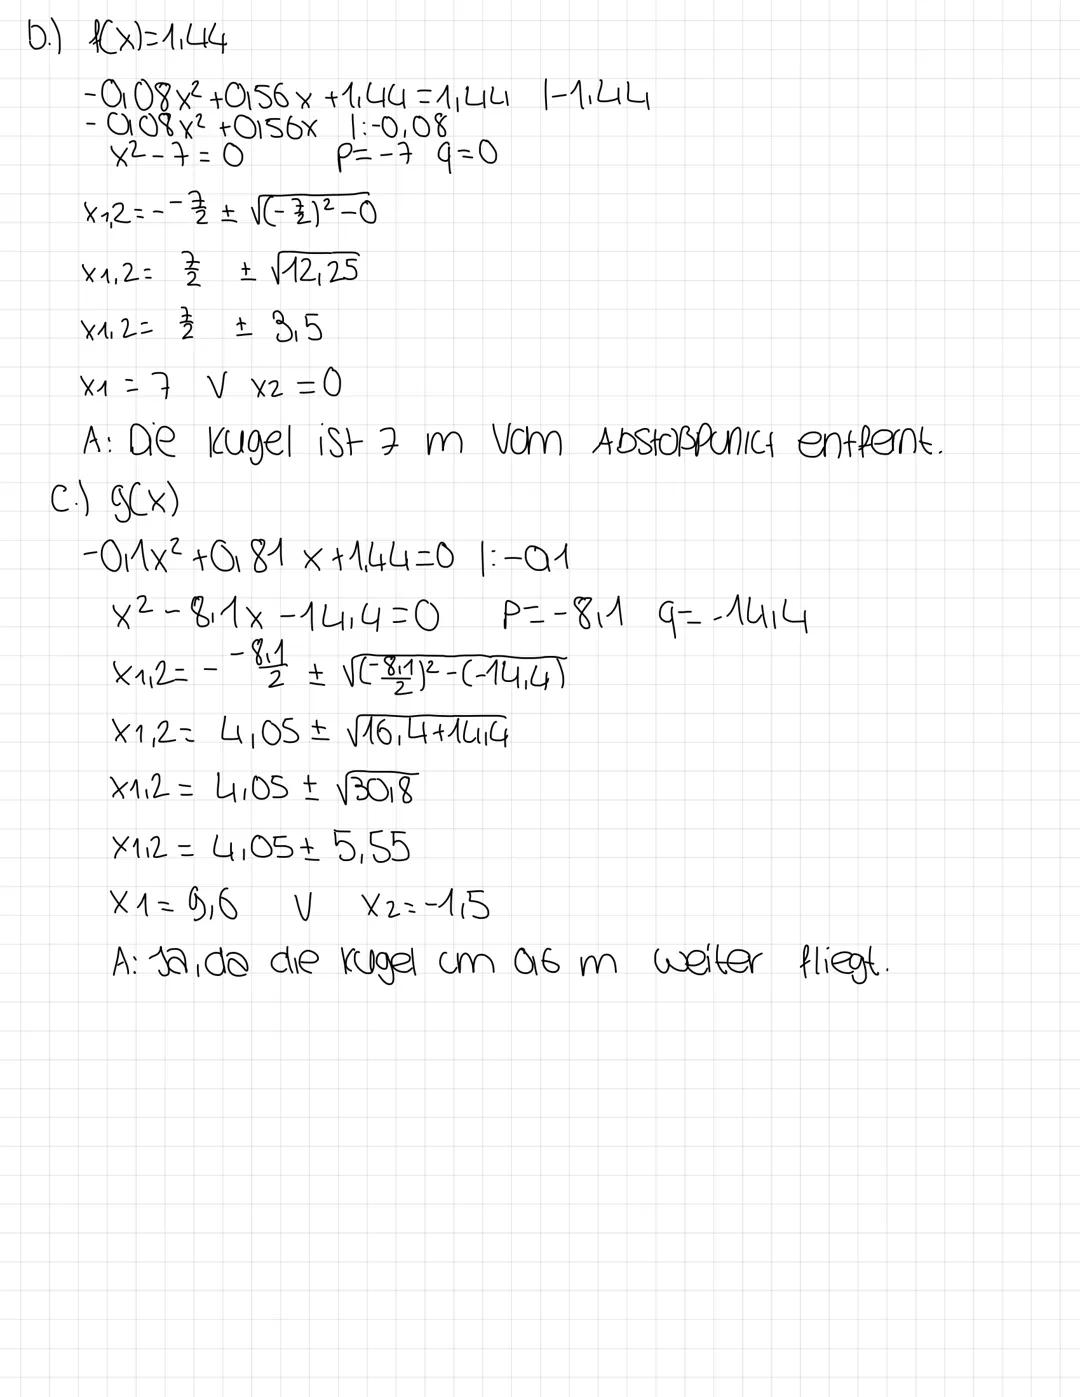 b.) f(x)=1,44
-0,08x² +0,56x +1,44 =1,44 |-1,44
- 0,08x² +0,56x |:-0,08
x² - 7 = 0 p= -7 q=0
x1,2= - -7/2 ± √(-7/2)² -0
x1,2= 7/2 ± √12,25
x1,2= 7/2 ± 3,5
x1 = 7 V x2 =0
A: Die Kugel ist 7 m vom Abstoßpunkt entfernt.
c.) g(x)
-0,1x² +0,81 x +1,44=0 |:-0,1
x² - 8,1x -14,4=0 p= -8,1 q= -14,4
x1,2= - -8,1/2 ± √(-8,1/2)² -(-14,4)
x1,2= 4,05 ± √16,4+14,4
x1,2 = 4,05 ± √30,8
x1,2 = 4,05 ± 5,55
x1= 9,6 V x2= -1,5
A: Ja, da die Kugel um 0,6 m weiter fliegt.